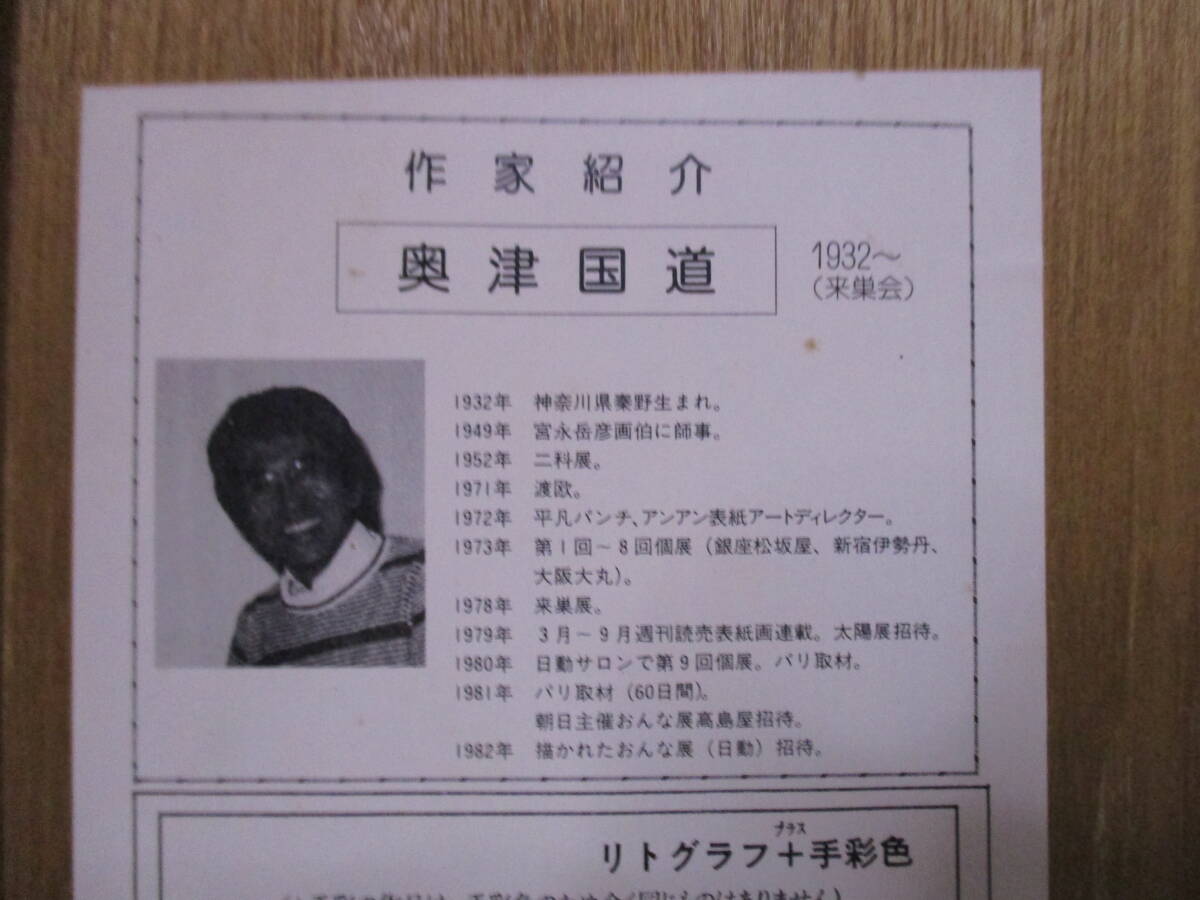 作家紹介
奥津国道
1932〜
(来巣会)
1932年 神奈川県秦野生まれ。
1949年 宮永岳彦画伯に師事。
1952年 二科展。
1971年 渡欧。
1972年 平凡パンチ、アンアン表紙アートディレクター。
1973年 第1回〜8回個展(銀座松坂屋、新宿伊勢丹、
大阪大丸)。
1978年 来巣展。
1979年 3月〜9月週刊読売表紙画連載。太陽展招待。
1980年 日動サロンで第9回個展。パリ取材。
1981年 パリ取材(60日間)。
朝日主催おんな展高島屋招待。
1982年 描かれたおんな展(日動)招待。
プラス
リトグラフ+手彩色